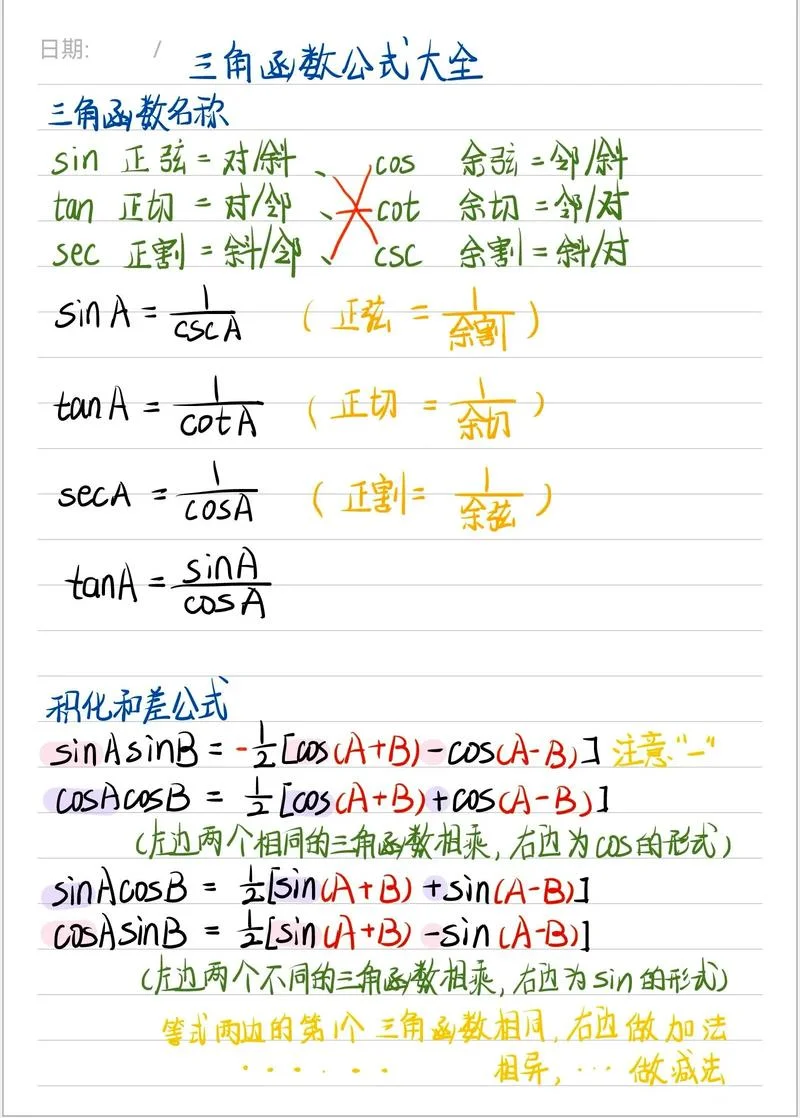 日期: /
三角函数公式大全
三角函数名称
sin 正弦=对/斜、 cos 余弦=邻/斜
tan 正切=对/邻、 cot 余切=邻/对
sec 正割=斜/邻、 csc 余割=斜/对
sinA = 1/cscA (正弦 = 1/余割)
tanA = 1/cotA (正切 = 1/余切)
secA = 1/cosA (正割= 1/余弦)
tanA = sinA/cosA
积化和差公式
sinAsinB = -1/2[cos(A+B)-cos(A-B)] 注意“-”
cosAcosB = 1/2[cos(A+B)+cos(A-B)]
(左边两个相同的三角函数相乘,右边为cos的形式)
sinAcosB = 1/2[sin(A+B)+sin(A-B)]
cosAsinB = 1/2[sin(A+B)-sin(A-B)]
(左边两个不同的三角函数相乘,右边为sin的形式)
等式两边的第1个三角函数相同,右边做加法
······ 相异,···做减法